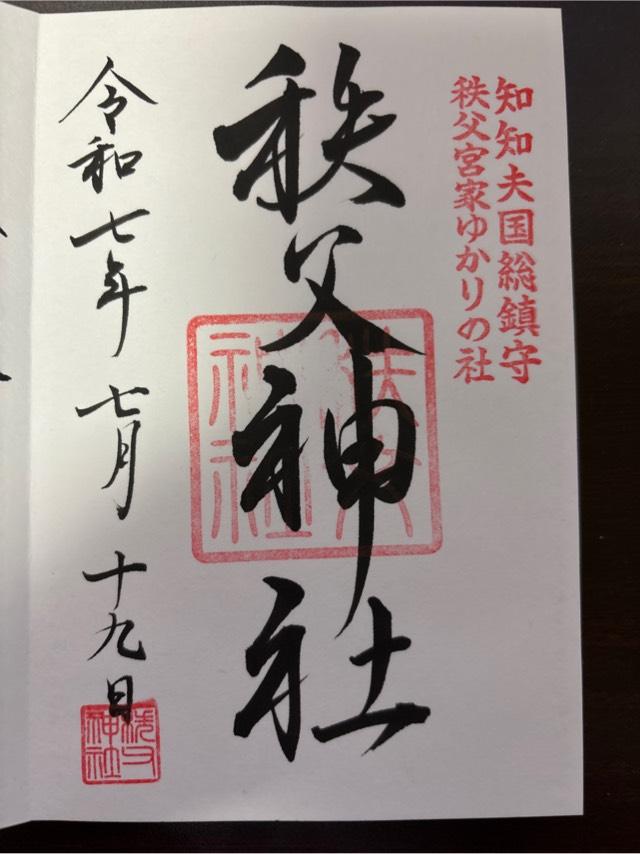 知知夫国総鎮守
秩父宮家ゆかりの社
秩父神社
秩父神社
令和七年 七月 十九日
秩父神社